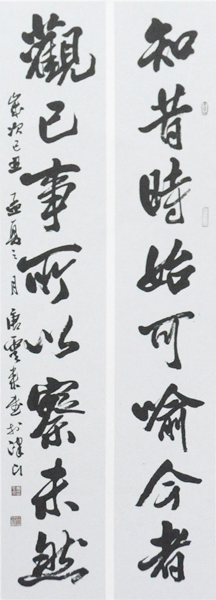 知昔時始可喻今者
觀已事所以察未然
歲次己丑孟夏之月唐雲來書於津門